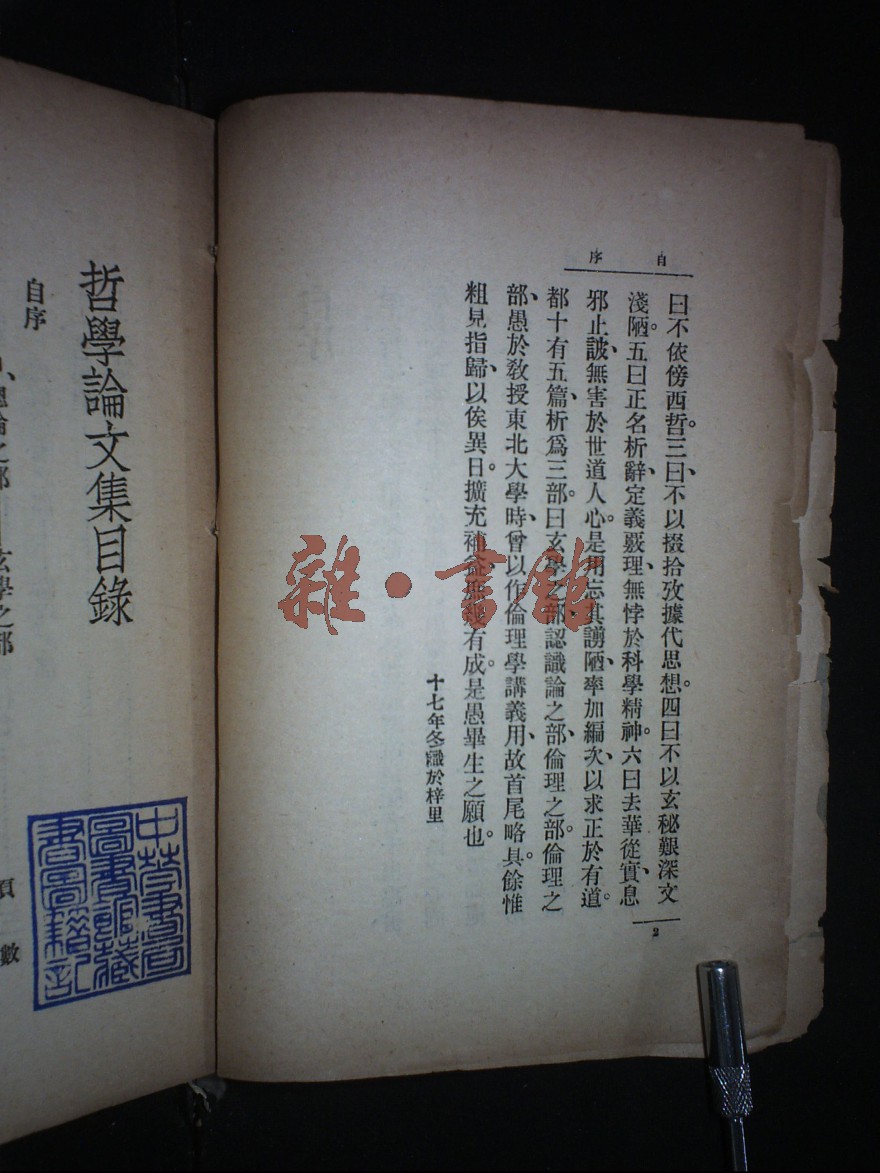 自序
曰不依傍西哲。三曰、不以掇拾攷據代思想。四曰不以玄秘艱深文
淺陋。五曰正名析辭、定義覈理、無悖於科學精神。六曰去華從實、息
邪止詖、無害於世道人心。是用忘其謭陋、率加編次、以求正於有道。
都十有五篇、析爲三部。曰玄學之部、認識論之部、倫理之部。倫理之
部、愚於教授東北大學時、曾以作倫理學講義、用故首尾略具。餘惟
粗見指歸、以俟異日。擴充補益、庶幾有成。是愚畢生之願也。
十七年冬識於梓里
2
哲學論文集目錄
自序
總論之部
玄學之部
頁
數
中華書局
圖書館藏
書圖籍記
雜·書館